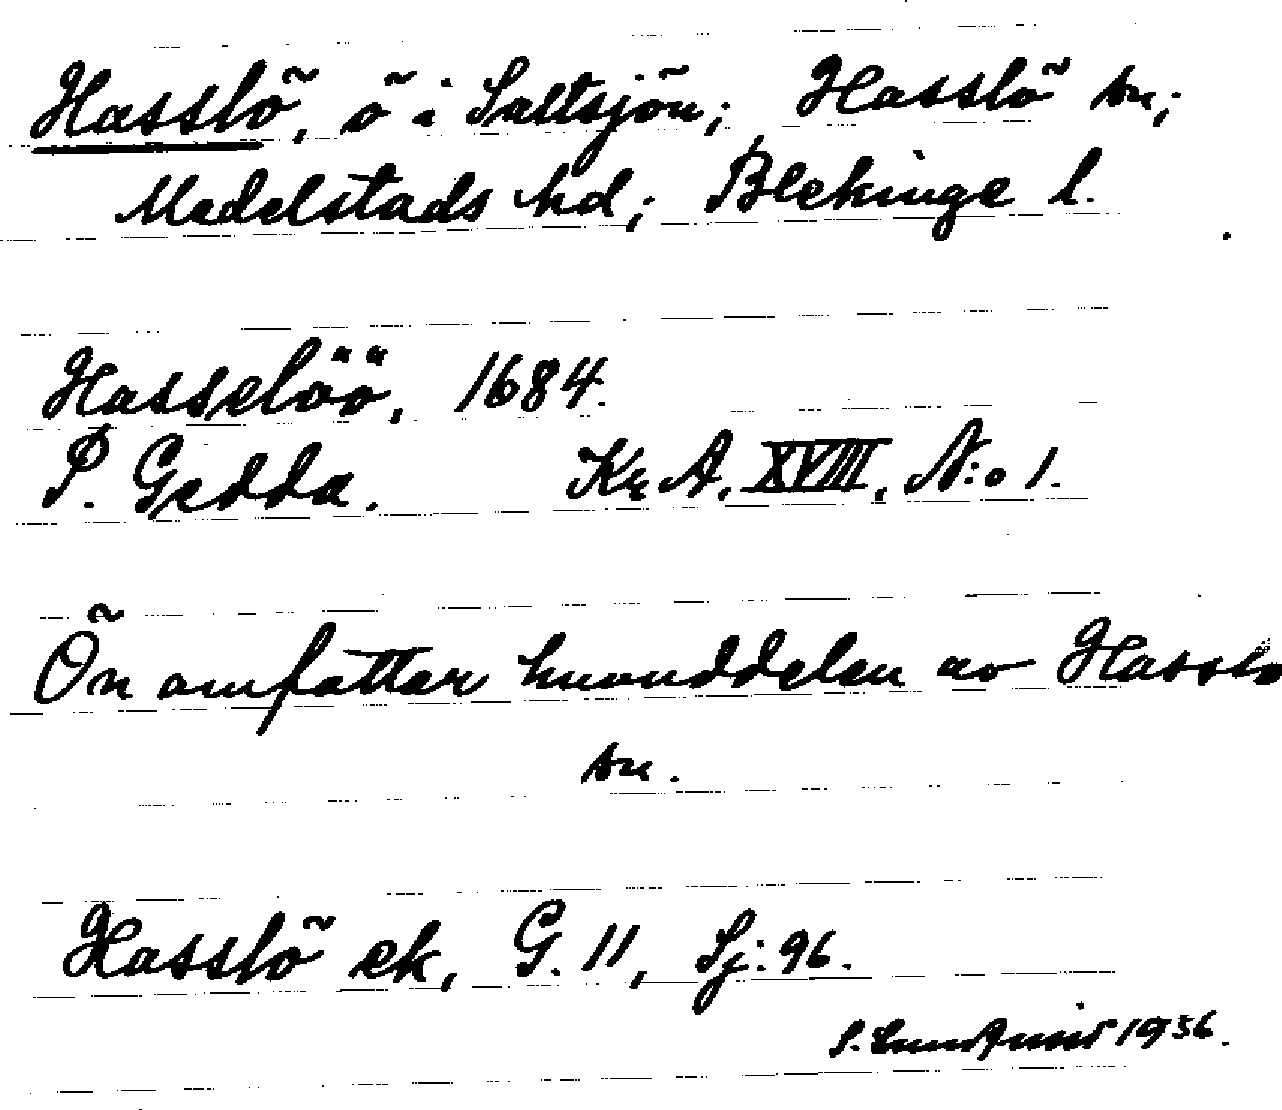 Hasslö, ö i Saltsjön; Hasslö sn;
Medelstads hd; Blekinge l.
Hasselöö, 1684.
P. Gedda. Kr A, XVIII, N:o 1.
Ön omfattar huvuddelen av Hasslö
sn.
Hasslö ek, G. 11, Sj: 96.
S. Lundqvist 1956.